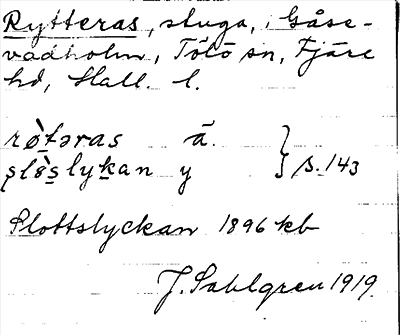 Rytteras, stuga, Gåse-
vadholm, Tölö sn, Fjäre
hd, Hall. l.
røtəras ä.
sløslykan y } s. 143
Slottslyckan 1896 kb
J. Sahlgren 1919.